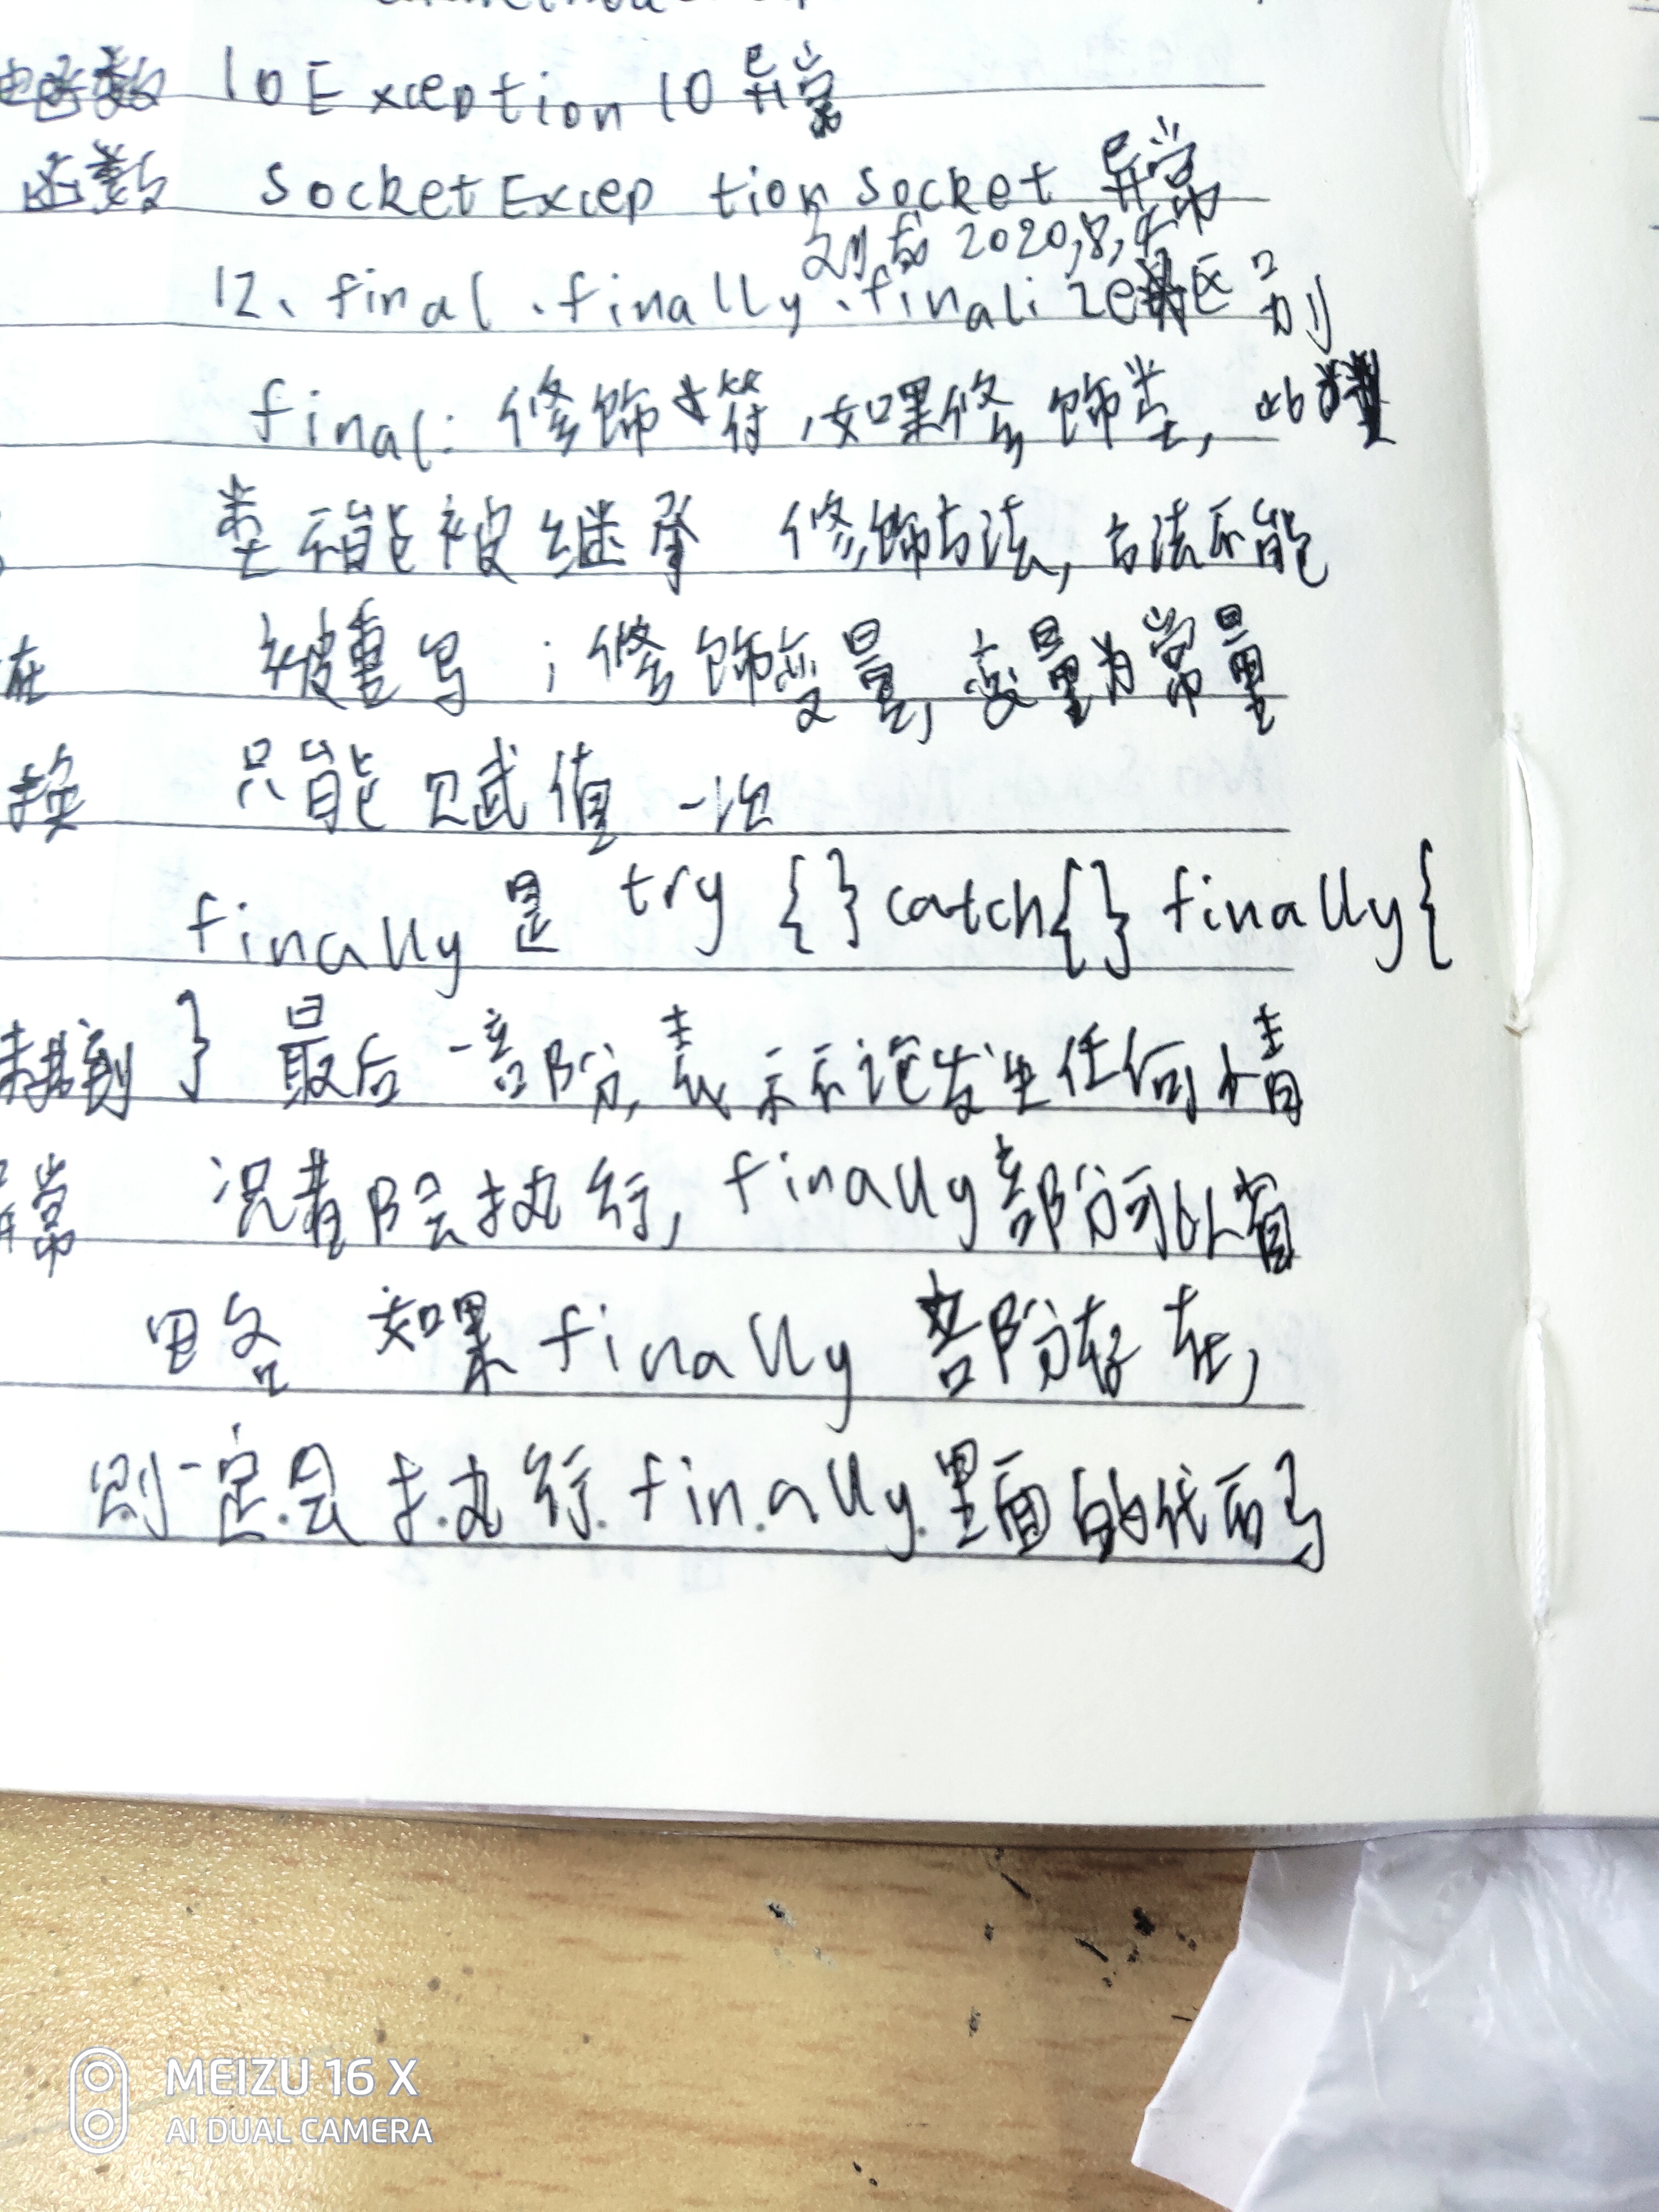 函数 IOException IO异常
函数 SocketException Socket 异常
2020,8,4
12、final、finally、finalize区别
final:修饰符,如果修饰类,此
类不能被继承 修饰方法,方法不能
在 被重写;修饰变量,变量为常量
换 只能赋值一次
finally 是 try {} catch{} finally{
} 最后一部分,表示不论发生任何情
常 况都会执行,finally部分可以省
略 如果 finally 部分存在,
则一定会执行 finally 里面的代码
MEIZU 16 X
AI DUAL CAMERA